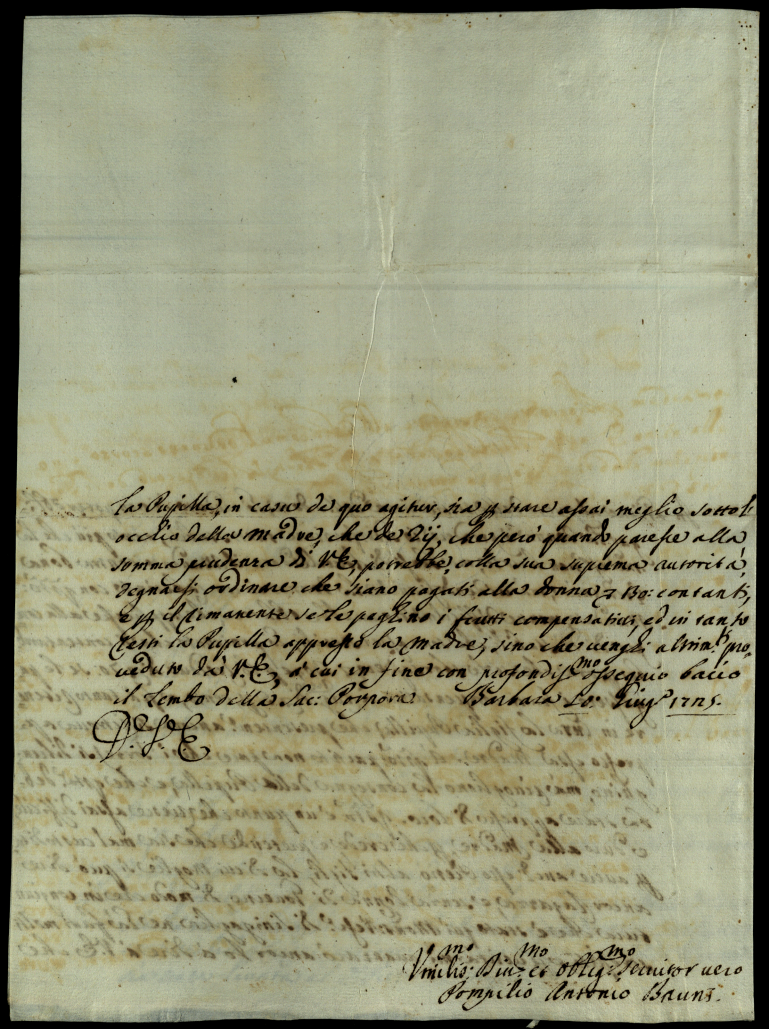 la Pupilla, in casu de quo agitur, sia p stare assai meglio sotto l'
occhio della madre, che de Zij, che però quando paresse alla
somma prudenza di V.E., potrebbe, colla sua suprema autorità,
degnarsi ordinare che siano pagati alla donna 130: contanti,
e p il rimanente se le paghino i frutti compensativi, ed in tanto
resti la Pupilla appresso la Madre, sino che venghi altrim.ti pro,
veduto da V.E., à cui in fine con profondiss.mo ossequio bacio
il Lembo della Sac: Porpora. Barbara 20: Giug.o 1725.
D. V. E.
Vmilis.mo Diu.mo et Oblig.mo seruitor uero
Pompilio Antonio